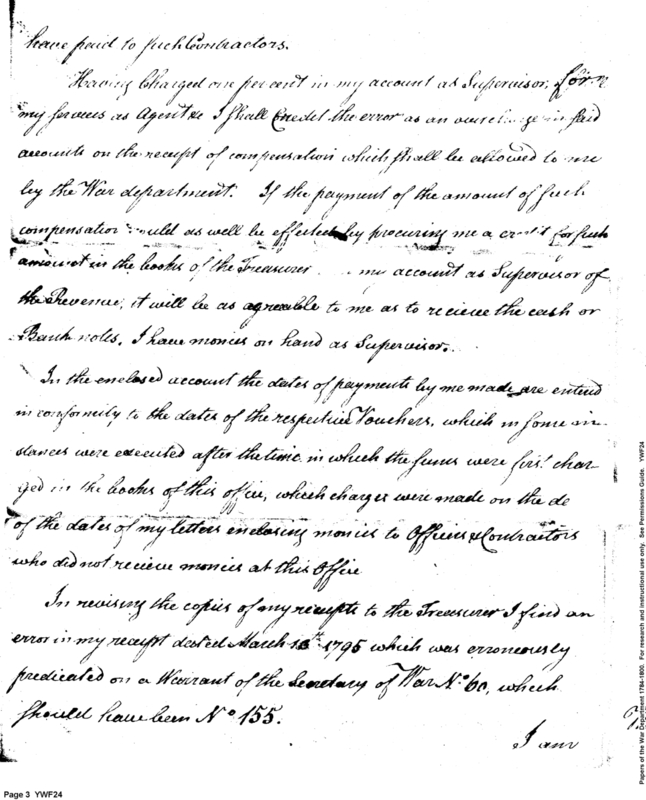 have paid to such Contractors.
Having Charged one per cent in my account as Supervisor, for
my services as Agent &c I shall Credit the error as an overcharge in said
accounts on the receipt of compensation which shall be allowed to me
by the War department. If the payment of the amount of such
compensation could as well be effected by procuring me a credit for such
amount in the books of the Treasurer my account as Supervisor of
the Revenue, it will be as agreable to me as to recieve the cash or
Bank notes. I have monies on hand as Supervisor.
In the enclosed account the dates of payments by me made are enterd
in conformity to the dates of the respective Vouchers, which in some in-
stances were executed after the time in which the sums were first char-
ged in the books of this office, which charges were made on the
of the dates of my letters enclosing monies to Officers & Contractors
who did not recieve monies at this Office
In revising the copies of my receipts to the Treasurer I find an
error in my receipt dated March 1795 which was erroneously
predicated on a Warrant of the Secretary of War No. 60, which
should have been No 155.
I am
Page 3 YWF24
Papers of the War Department 1784-1800. For research and instructional use only. See Permissions Guide. YWF24